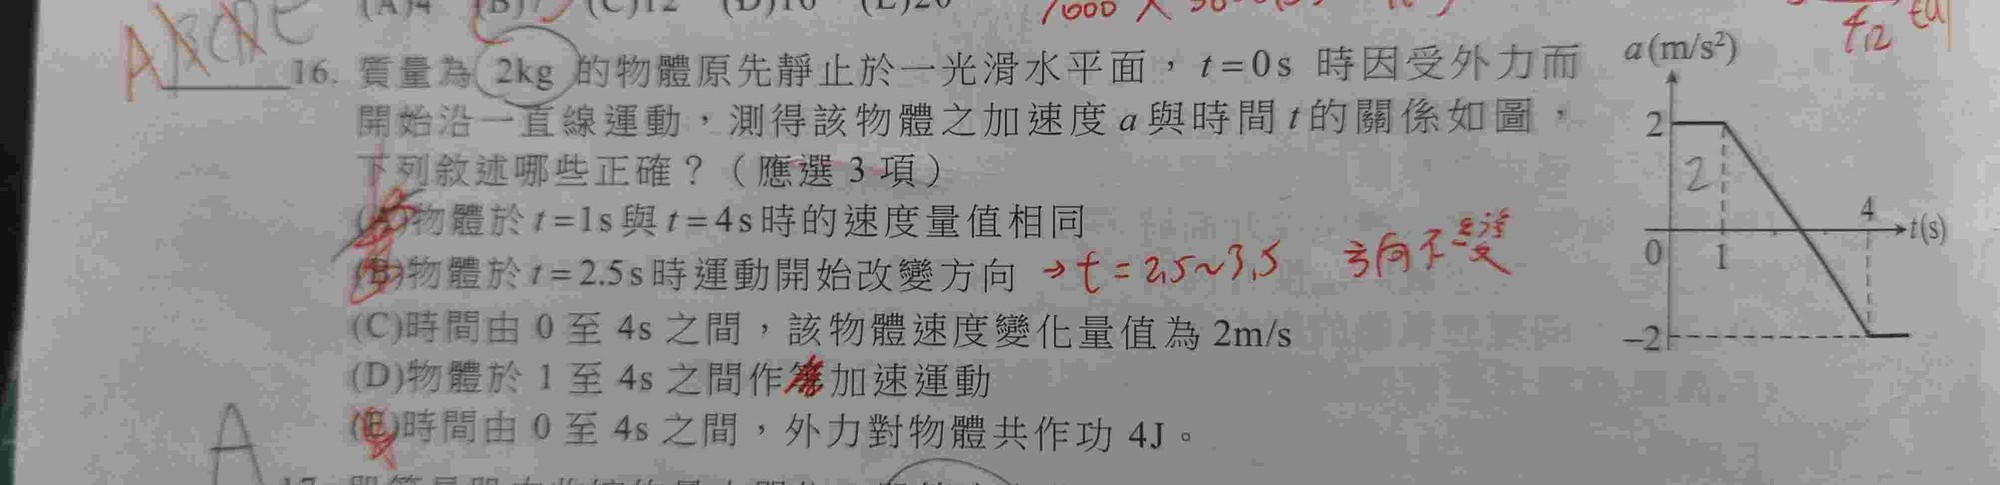 (A)4 (B)7 (C)12 (D)16 (E)20
16. 質量為 2kg 的物體原先靜止於一光滑水平面，t=0s 時因受外力而
開始沿一直線運動，測得該物體之加速度 a 與時間 t 的關係如圖，
下列敘述哪些正確？（應選 3 項）
(A)物體於 t=1s 與 t=4s 時的速度量值相同
(B)物體於 t=2.5s 時運動開始改變方向 → t=2.5~3.5 方向不變
(C)時間由 0 至 4s 之間，該物體速度變化量值為 2m/s
(D)物體於 1 至 4s 之間作 加速運動
(E)時間由 0 至 4s 之間，外力對物體共作功 4J。
A
a(m/s²)
2
2
4
t(s)
0
1
-2